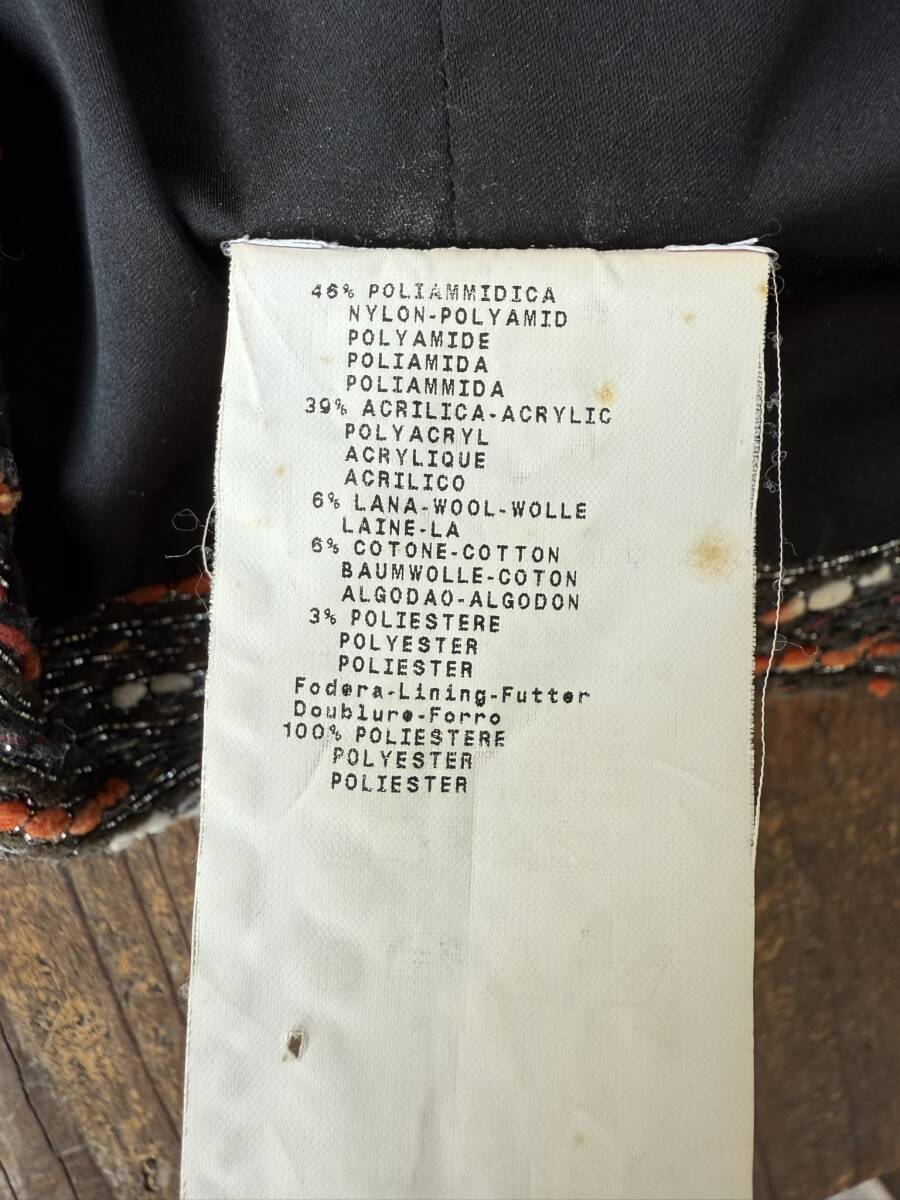 46% POLIAMMIDICA
NYLON-POLYAMID
POLYAMIDE
POLIAMIDA
POLIAMMIDA
39% ACRILICA-ACRYLIC
POLYACRYL
ACRYLIQUE
ACRILICO
6% LANA-WOOL-WOLLE
LAINE-LA
6% COTONE-COTTON
BAUMWOLLE-COTON
ALGODAO-ALGODON
3% POLIESTERE
POLYESTER
POLIESTER
Fodera-Lining-Futter
Doublure-Forro
100% POLIESTERE
POLYESTER
POLIESTER